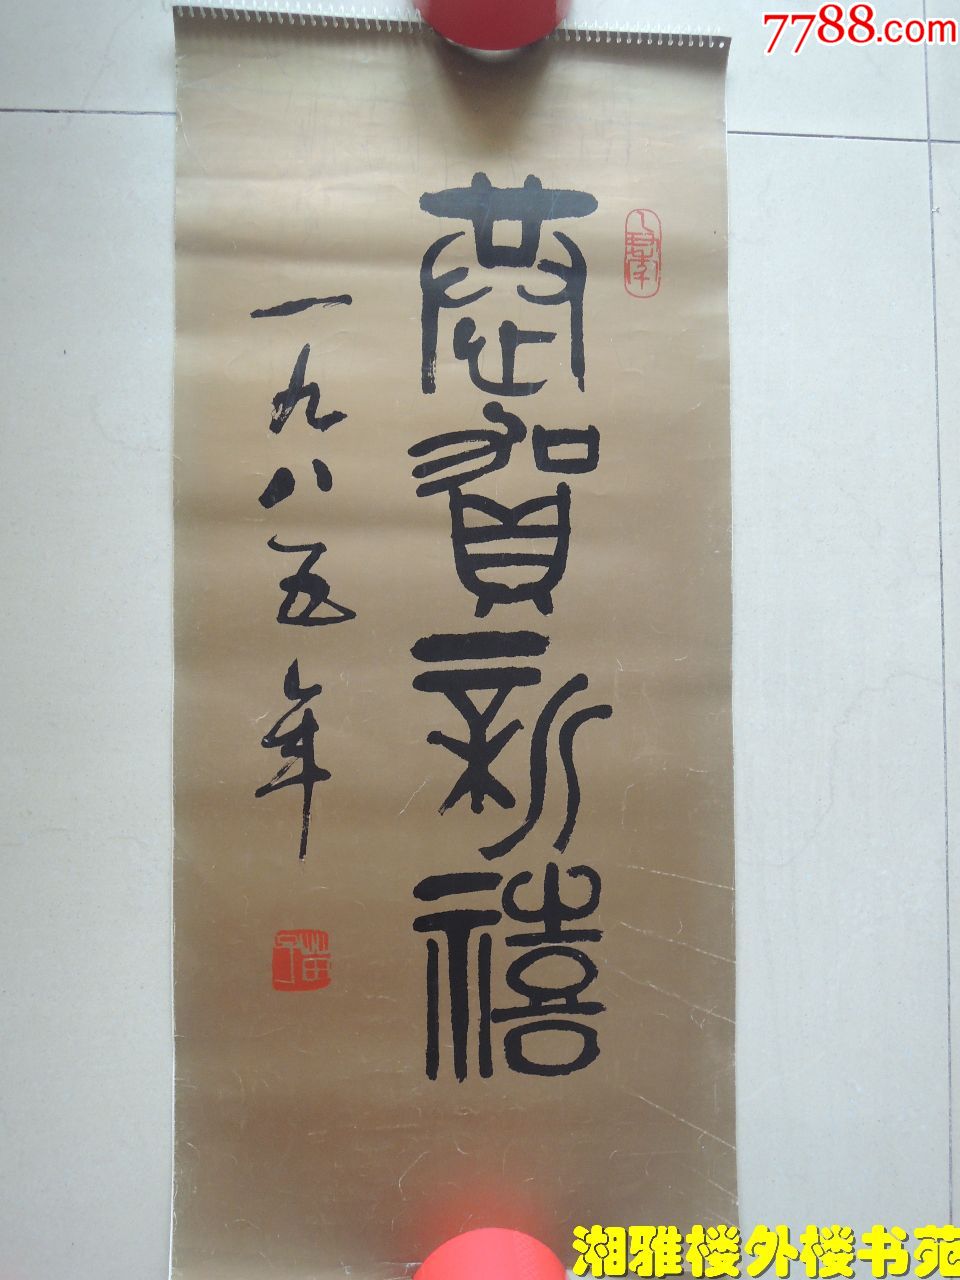 7788.com
恭賀新禧
一九八五年
湘雅楼外楼书苑